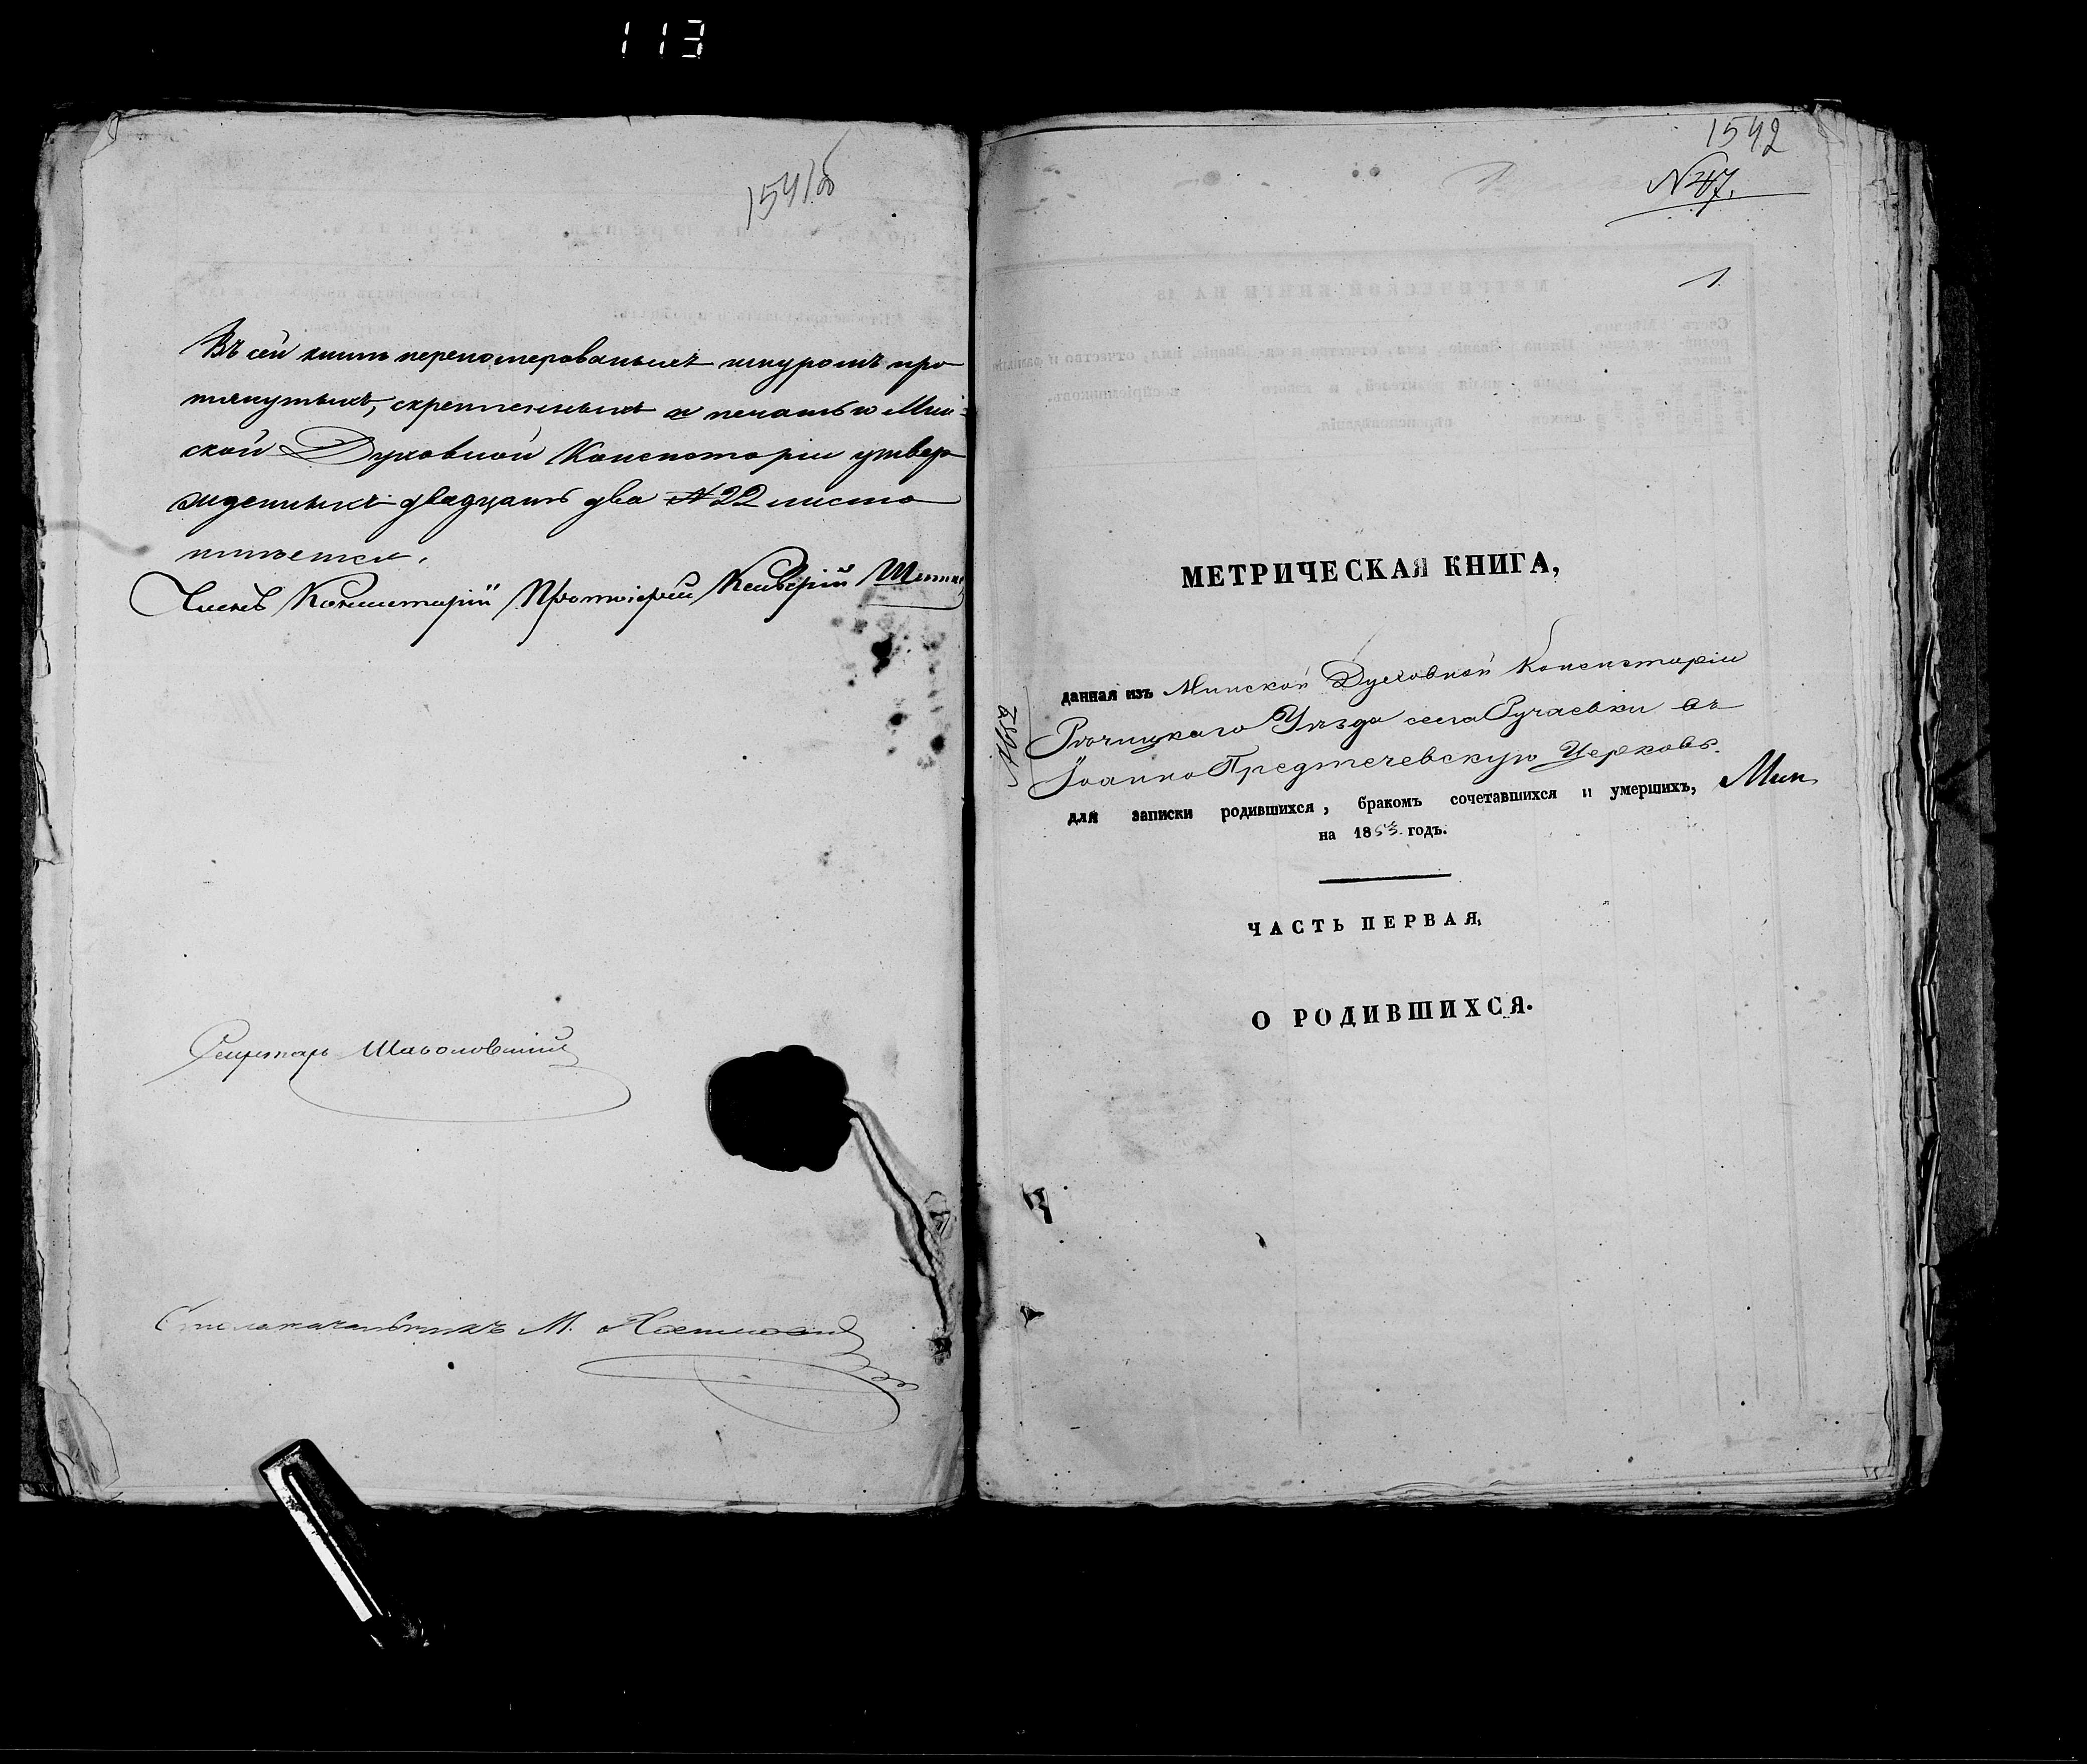 113
1541 об
Въ сей книгѣ перенумерованныхъ шнуромъ про
тянутыхъ, скрепленныхъ и печатью Мин-
ской Духовной Консисторіи утвер
жденныхъ двадцать два № 22 листа
имѣется.
Членъ Консисторіи Протоіерей
Секретарь
Столоначальникъ М.
1542
№ 47.
1
МЕТРИЧЕСКАЯ КНИГА,
данная изъ Минской Духовной Консисторіи
Рѣчицкаго Уѣзда села Ручаевки въ
Іоанно Предтечевскую Церковь.
для записки родившихся, бракомъ сочетавшихся и умершихъ, Мин
на 1853 годъ.
ЧАСТЬ ПЕРВАЯ,
О РОДИВШИХСЯ.